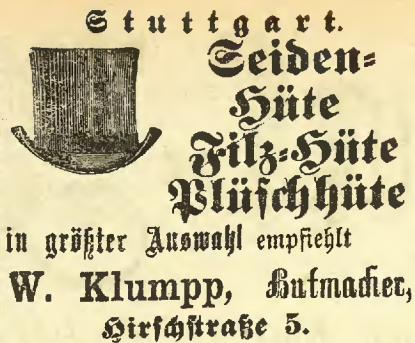 Stuttgart.
Seiden-
Hüte
Filz-Hüte
Plüschhüte
in größter Auswahl empfiehlt
W. Klumpp, Hutmacher,
Hirschstraße 5.